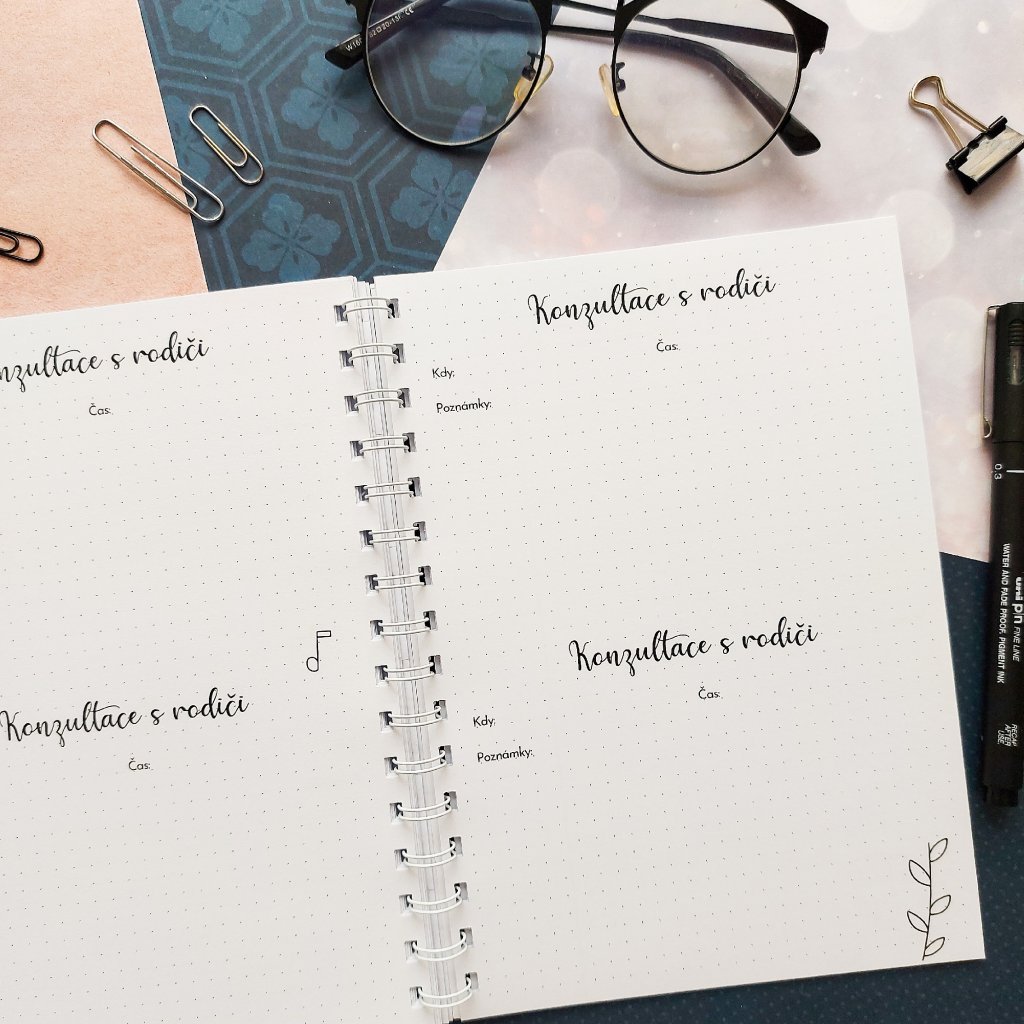 nzultace s rodiči
Čas:
Konzultace s rodiči
Čas:
Konzultace s rodiči
Čas:
Kdy:
Poznámky:
Konzultace s rodiči
Čas:
Kdy:
Poznámky:
0.3
WATER AND FADE PROOF, PIGMENT INK
uni pin FINE LINE
RECAP
AFTER
USE.